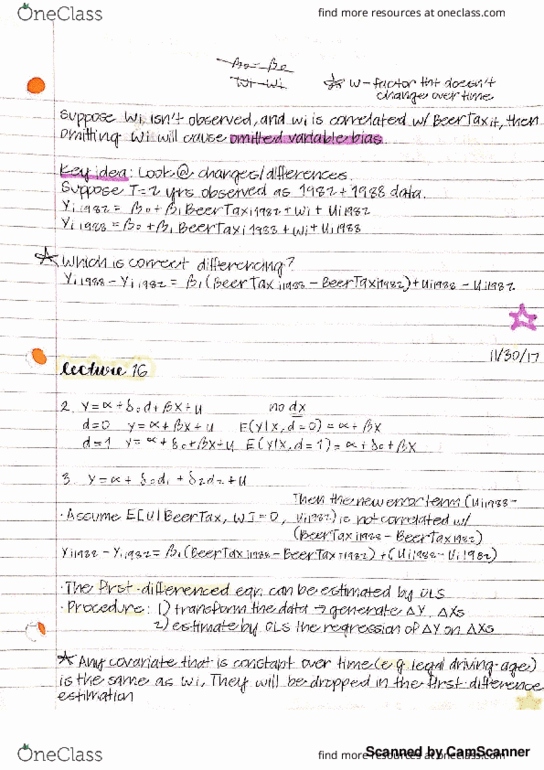 OneClass
find more resources at oneclass.com
β₀ - β₀
Wi - Wi
☆ W - factor tht doesn't
change over time
Suppose Wi isn't observed, and wi is correlated w/ BeerTaxit, then
omitting Wi will cause omitted variable bias.
Key idea: Look @ changes/differences.
Suppose T=2 yrs observed as 1982 + 1988 data.
Yi1982 = β₀ + β₁ BeerTaxi1982 + Wi + Ui1982
Yi1988 = β₀ + β₁ BeerTaxi1988 + Wi + Ui1988
☆ Which is correct differencing?
Yi1988 - Yi1982 = β₁(BeerTaxi1988 - BeerTaxi1982) + Ui1988 - Ui1982
11/30/17
lecture 16
2. y = α + δ₀d + βx + u no dx
d=0 y = α + βx + u E(y|x, d=0) = α + βx
d=1 y = α + δ₀ + βx + u E(y|x, d=1) = α + δ₀ + βx
3. y = α + δ₀d₁ + δ₂d₂ + u
Then the new error term (Ui1988 -
· Assume E(U|BeerTax, WI = 0, Ui1982) is not correlated w/
(BeerTaxi1988 - BeerTaxi1982)
Yi1988 - Yi1982 = β₁(BeerTaxi1988 - BeerTaxi1982) + (Ui1988 - Ui1982)
· The first-differenced eqn. can be estimated by OLS
· Procedure: 1) transform the data → generate ΔY, ΔXs
2) estimate by OLS the regression of ΔY on ΔXs
☆ Any covariate that is constant over time (e.g. legal driving-age)
is the same as Wi, They will be dropped in the first-difference
estimation
OneClass
find more resources at oneclass.com
Scanned by CamScanner